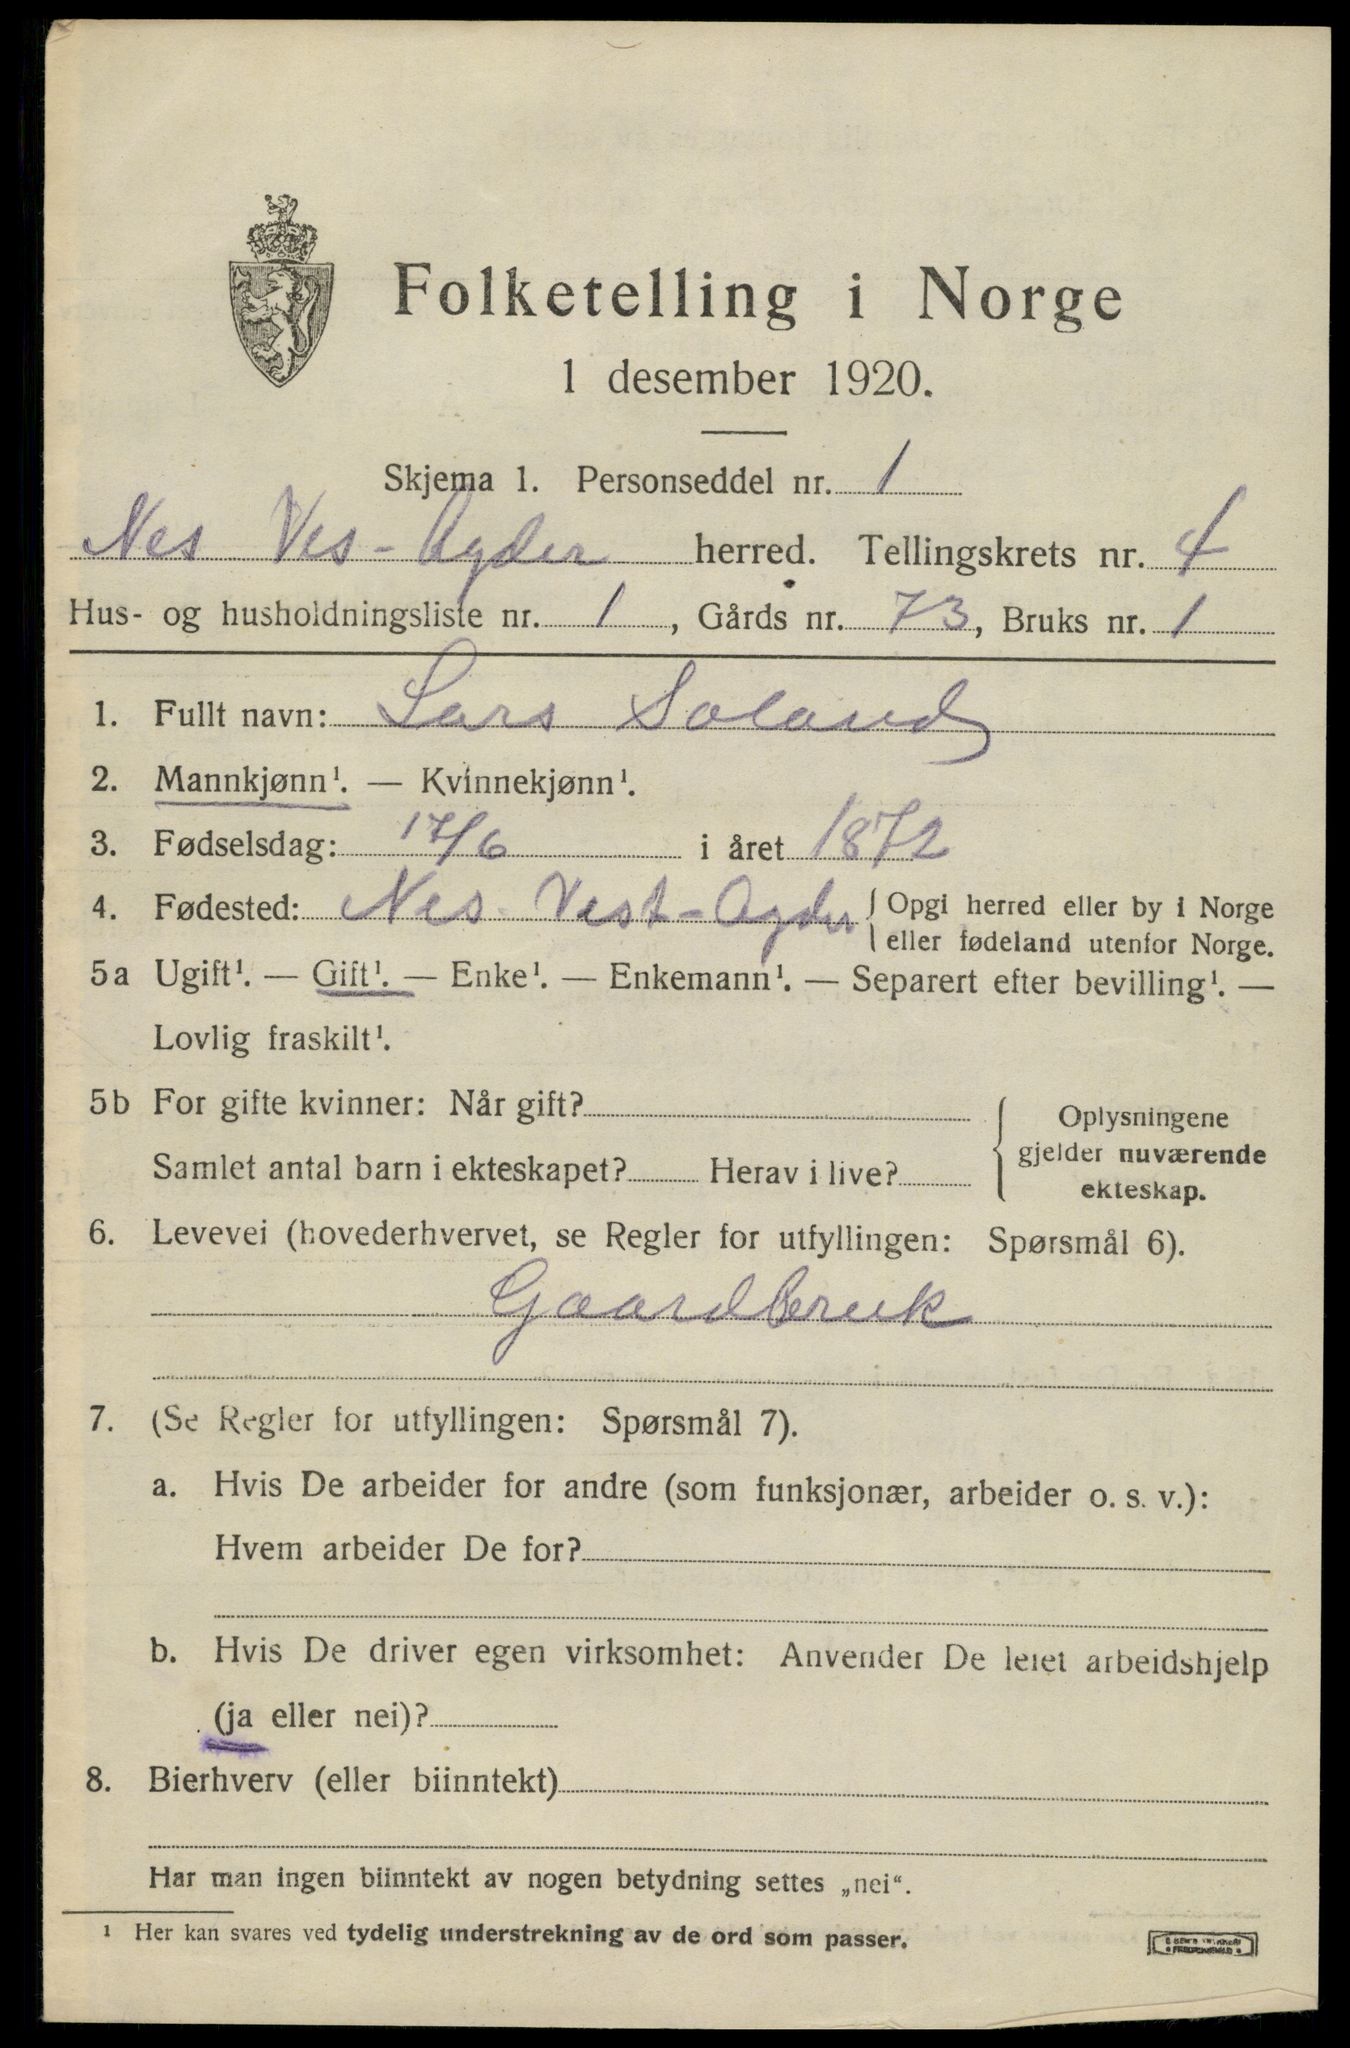 Folketelling i Norge
1 desember 1920.
Skjema 1. Personseddel nr. 1
Nes Ves-Agder herred. Tellingskrets nr. 4
Hus- og husholdningsliste nr. 1, Gårds nr. 73, Bruks nr. 1
1. Fullt navn: Lars Soland
2. Mannkjønn¹. — Kvinnekjønn¹.
3. Fødselsdag: 17/6 i året 1872
4. Fødested: Nes. Vest-Agder { Opgi herred eller by i Norge
eller fødeland utenfor Norge.
5a Ugift¹. — Gift¹. — Enke¹. — Enkemann¹. — Separert efter bevilling¹. —
Lovlig fraskilt¹.
5b For gifte kvinner: Når gift?
Samlet antal barn i ekteskapet? Herav i live?
Oplysningene
gjelder nuværende
ekteskap.
6. Levevei (hovederhvervet, se Regler for utfyllingen: Spørsmål 6).
Gaardbruk
7. (Se Regler for utfyllingen: Spørsmål 7).
a. Hvis De arbeider for andre (som funksjonær, arbeider o. s. v.):
Hvem arbeider De for?
b. Hvis De driver egen virksomhet: Anvender De leiet arbeidshjelp
(ja eller nei)?
8. Bierhverv (eller biinntekt)
Har man ingen biinntekt av nogen betydning settes „nei“.
¹ Her kan svares ved tydelig understrekning av de ord som passer.